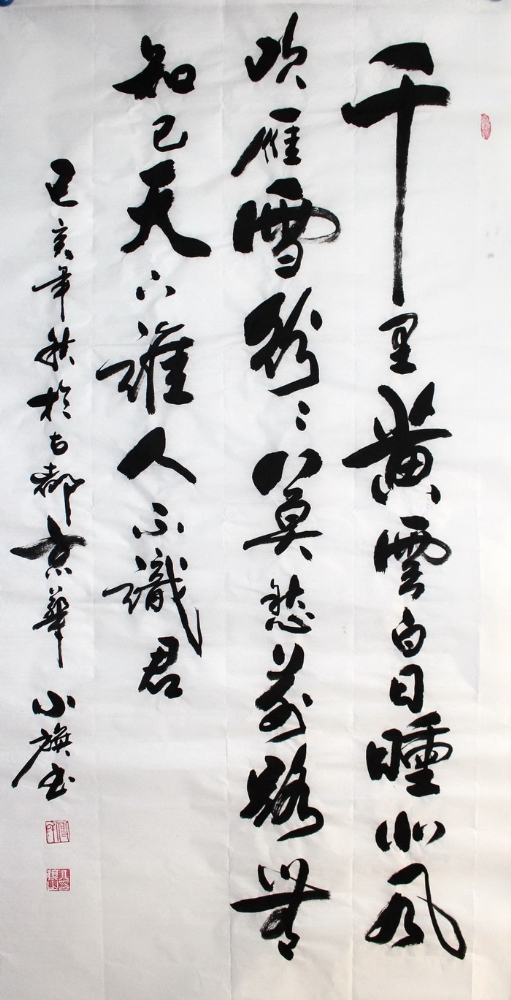 千里黄雲白日曛北風
吹雁雪紛々莫愁前路無
知己天下誰人不識君
己亥年秋於古都京華 小旗書